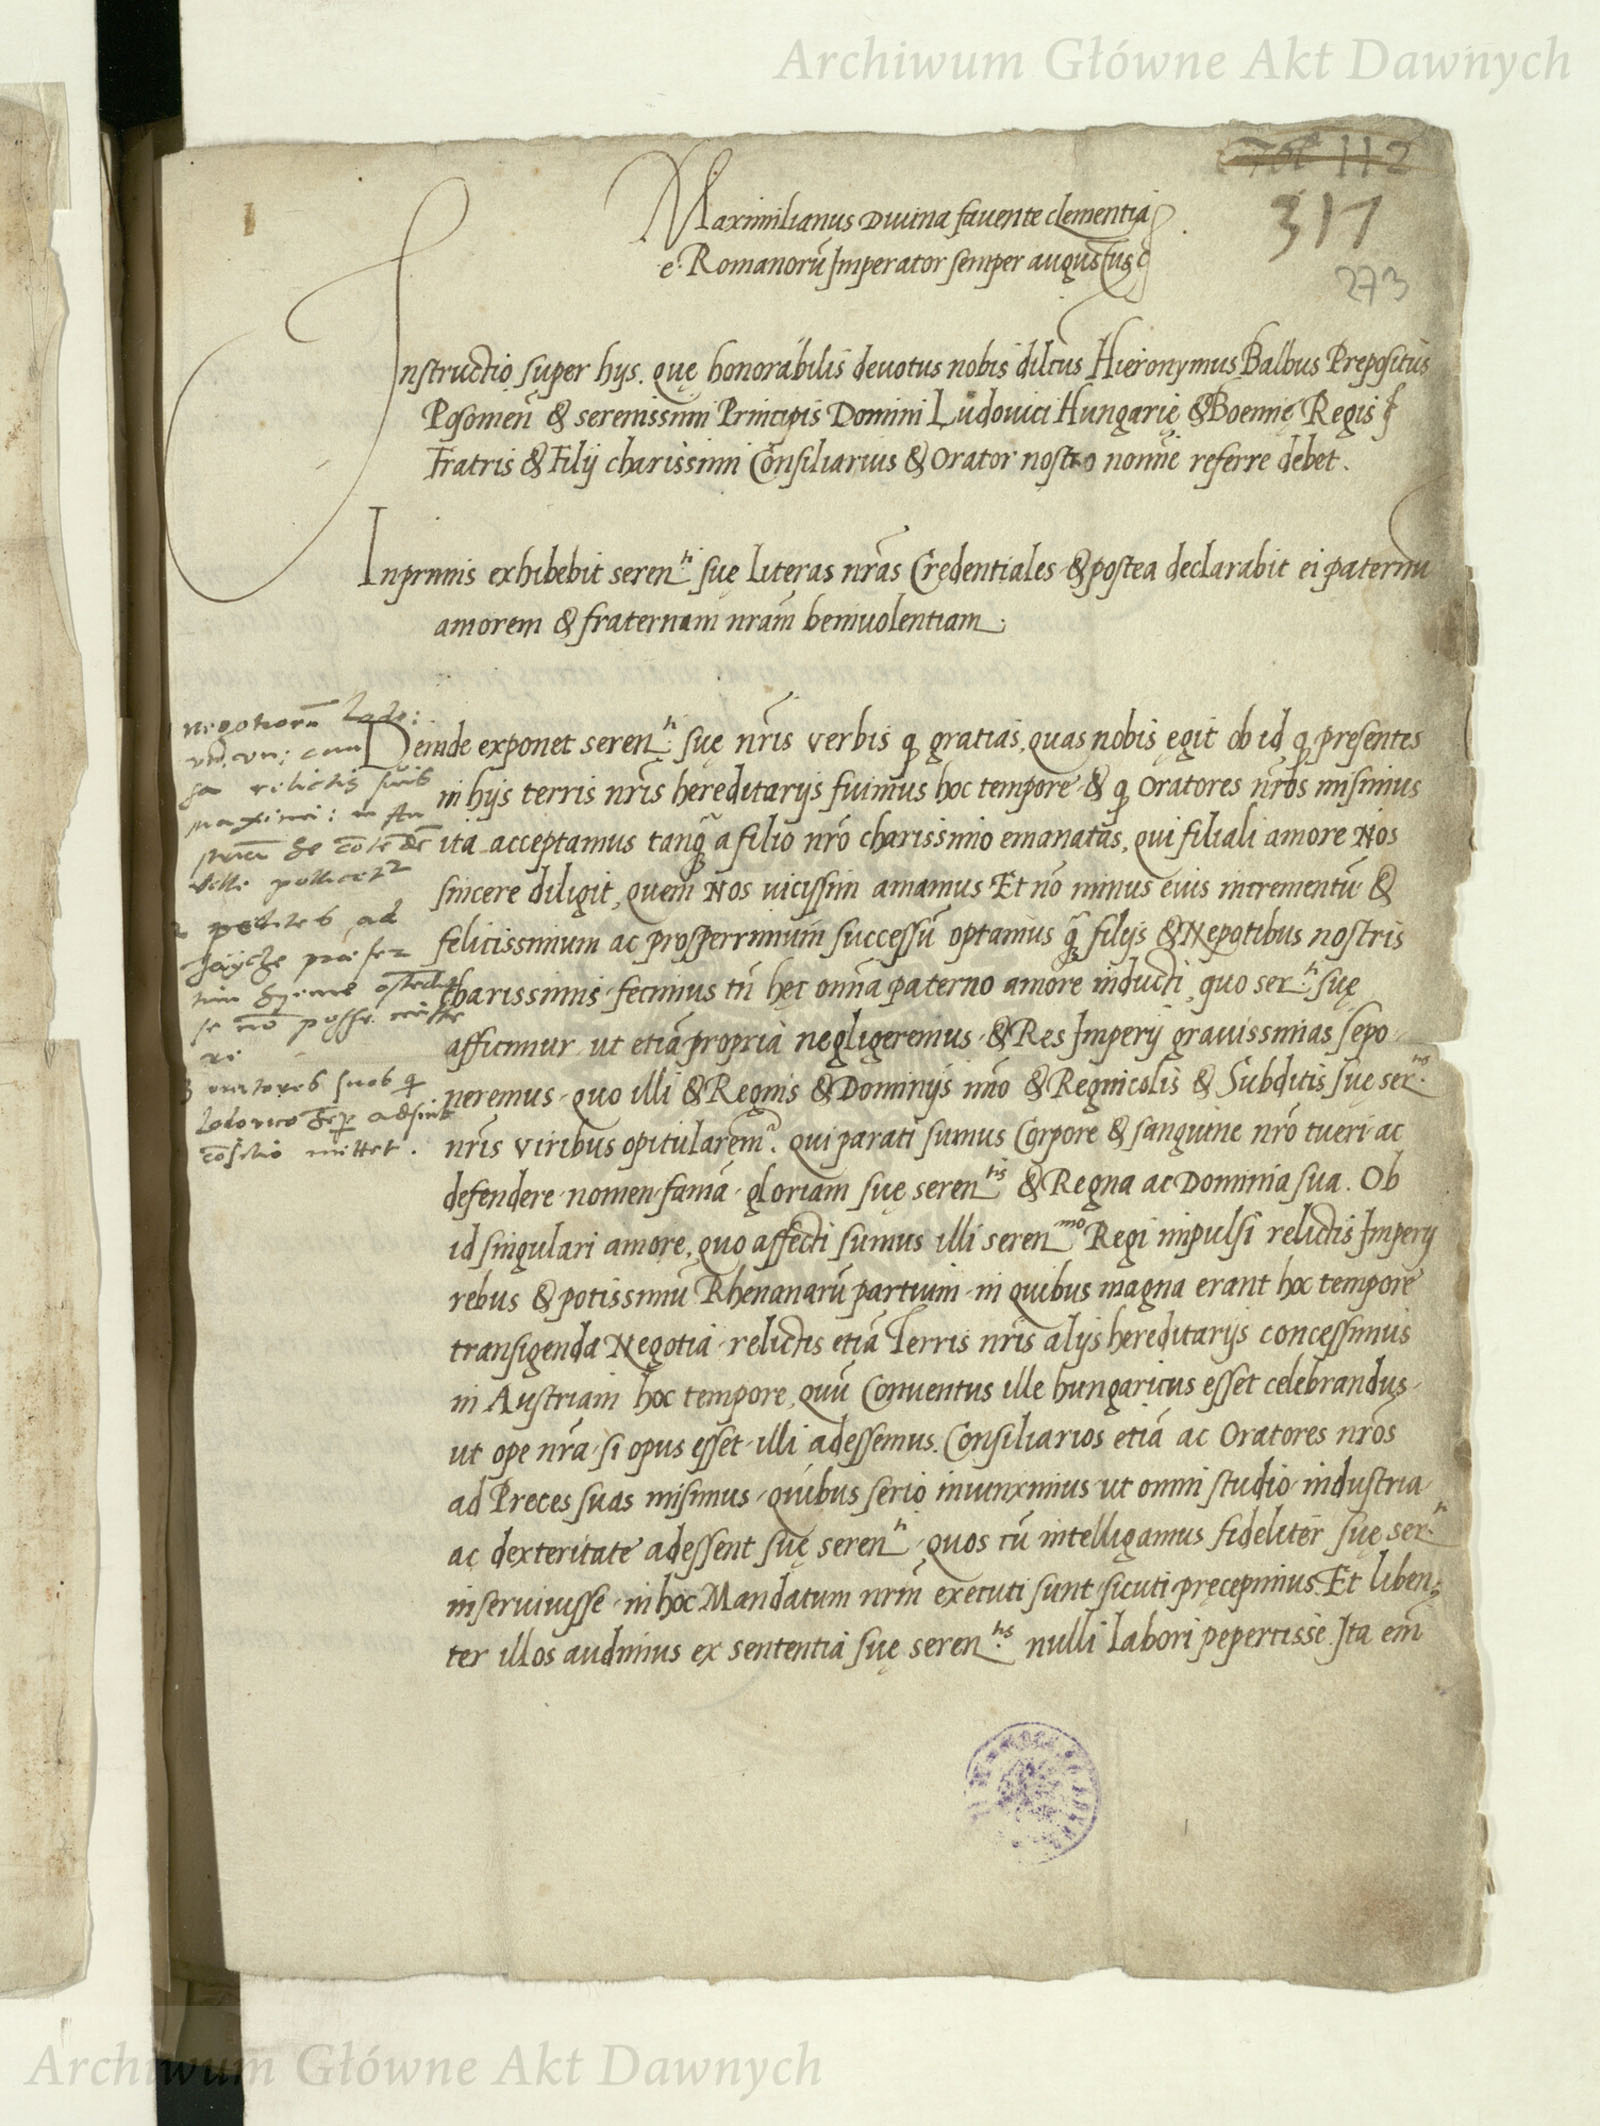 Archiwum Główne Akt Dawnych
112
317
273
Maximilianus Diuina fauente clementia
e. Romanorũ Imperator semper augustus &c
Instructio super hijs. quę honorabilis deuotus nobis dilctus Hieronymus Balbus Prepositus
Posomeñ & serenissimi Principis Domini Ludouici Hungarię & Boemię Regis &
Fratris & Filij charissimi Consiliarius & Orator nostro nomĩe referre debet.
Inprimis exhibebit seren.ti suę Literas nrãs Credentiales & postea declarabit ei paternũ
amorem & fraternam nrãm beniuolentiam.
negotiorũ Lado:
vnd. vn: cum
ga relictis suis
maximi: in Au
striã se
velle pollicetr
2 petites ad
se nõ posse
3 oratores suos qͥ
Lodouico semp adsint
cõsilio mittet.
Deinde exponet seren.ti suę nrĩs verbis ꝙ gratias, quas nobis ęgit ob id ꝙ presentes
in hijs terris nrĩs hereditarijs fuimus hoc tempore & ꝙ Oratores nrõs misimus
ita acceptamus tanꝗ̃ a filio nrõ charissimo emanatas, qui filiali amore Nos
sincere diligit, quem Nos uicissim amamus Et nõ minus eius incrementũ &
felicissimum ac prosperrimum successũ optamus ꝗ̃ filijs & Nepotibus nostris
charissimis. fecimus tñ hęc omnĩa paterno amore inducti, quo ser.ti suę
afficimur. ut etiã propria negligeremus. & Res Imperij grauissimas sepo-
neremus. quo illi & Regnis & Dominijs immo & Regnicolis & Subditis suę ser.tis
nrĩs viribus opitularemr̃. qui parati sumus Corpore & sanguine nrõ tueri ac
defendere. nomen. famã. gloriam suę seren.tis & Regna ac Dominia sua. Ob
id singulari amore, quo affecti sumus illi seren.mo Regi impulsi relictis Imperij
rebus & potissimũ Rhenanarũ partium. in quibus magna erant hoc tempore
transigenda Negotia. relictis etiã Terris nrĩs alijs hereditarijs concessimus
in Austriam hoc tempore, quũ Conuentus ille hungaricus esset celebrandus.
ut ope nrã. si opus esset. illi adessemus. Consiliarios etiã ac Oratores nrõs
ad Preces suas misimus. quibus serio iniunximus. ut omni studio. industria.
ac dexteritate adessent suę seren.ti. quos cũ intelligamus fideliter suę ser.ti
inseruiuisse. in hoc Mandatum nrm̃ executi sunt. sicuti pręcepimus. Et liben-
ter illos audimus ex sententia suę seren.tis nulli labori pepercisse. Ita eñi
Archiwum Główne Akt Dawnych